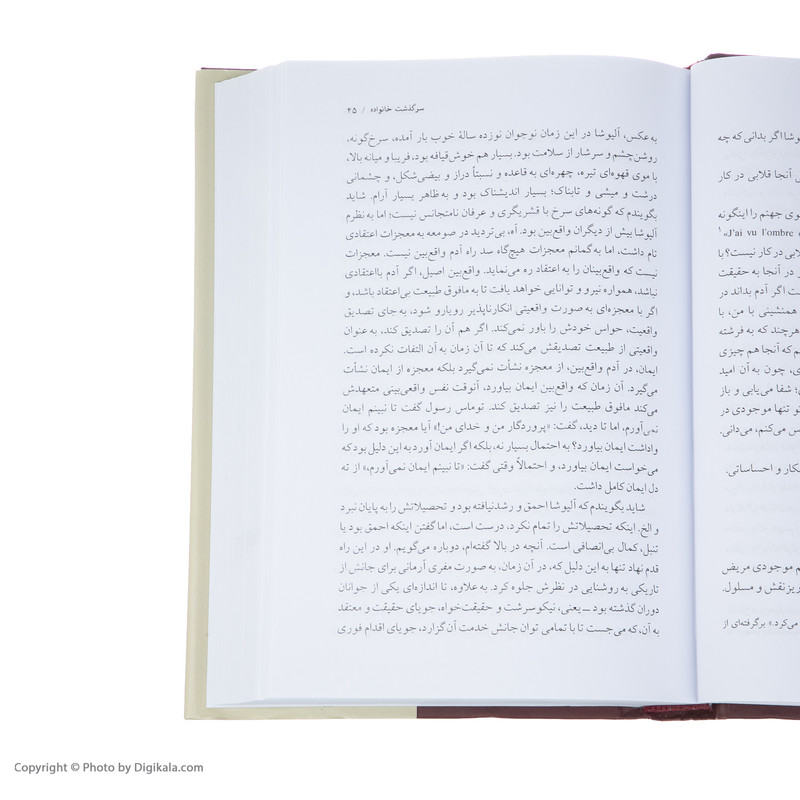 وشا اگر بدانی که چه
آنجا قلابی در کار
وی جهنم را اینگونه
«J'ai vu l'ombre
لابی در کار نیست؟ با
در آنجا به حقیقت
ت اگر آدم بداند در
همنشینی با من، با
هرچند که به فرشته
م که آنجا هم چیزی
ی، چون به آن امید
؛ شفا می‌یابی و باز
تو تنها موجودی در
س می‌کنم، می‌دانی.
کار و احساساتی.
م موجودی مریض
ریزنقش و مسلول.
می‌کرد.» برگرفته‌ای از
سرگذشت خانواده / ۴۵
به‌عکس، آلیوشا در این زمان نوجوان نوزده سالهٔ خوب بار آمده، سرخ‌گونه،
روشن‌چشم و سرشار از سلامت بود. بسیار هم خوش‌قیافه بود، فریبا و میانه بالا،
با موی قهوه‌ای تیره، چهره‌ای به قاعده و نسبتاً دراز و بیضی‌شکل، و چشمانی
درشت و میشی و تابناک؛ بسیار اندیشناک بود و به ظاهر بسیار آرام. شاید
بگویندم که گونه‌های سرخ با قشریگری و عرفان نامتجانس نیست؛ اما به نظرم
آلیوشا بیش از دیگران واقع‌بین بود. آه، بی‌تردید در صومعه به معجزات اعتقادی
تام داشت، اما به‌گمانم معجزات هیچ‌گاه سد راه آدم واقع‌بین نیست. معجزات
نیست که واقع‌بینان را به اعتقاد ره می‌نماید. واقع‌بین اصیل، اگر آدم بااعتقادی
نباشد، همواره نیرو و توانایی خواهد یافت تا به مافوق طبیعت بی‌اعتقاد باشد، و
اگر با معجزه‌ای به صورت واقعیتی انکارناپذیر رویارو شود، به‌جای تصدیق
واقعیت، حواس خودش را باور نمی‌کند. اگر هم آن را تصدیق کند، به عنوان
واقعیتی از طبیعت تصدیقش می‌کند که تا آن زمان به آن التفات نکرده است.
ایمان، در آدم واقع‌بین، از معجزه نشأت نمی‌گیرد بلکه معجزه از ایمان نشأت
می‌گیرد. آن زمان که واقع‌بین ایمان بیاورد، آنوقت نفس واقع‌بینی متعهدش
می‌کند مافوق طبیعت را نیز تصدیق کند. توماس رسول گفت تا نبینم ایمان
نمی‌آورم، اما تا دید، گفت: «پروردگار من و خدای من!» آیا معجزه بود که او را
واداشت ایمان بیاورد؟ به احتمال بسیار نه، بلکه اگر ایمان آورد به این دلیل بود که
می‌خواست ایمان بیاورد، و احتمالاً وقتی گفت: «تا نبینم ایمان نمی‌آورم،» از ته
دل ایمان کامل داشت.
شاید بگویندم که آلیوشا احمق و رشدنیافته بود و تحصیلاتش را به پایان نبرد
و الخ. اینکه تحصیلاتش را تمام نکرد، درست است، اما گفتن اینکه احمق بود یا
تنبل، کمال بی‌انصافی است. آنچه در بالا گفته‌ام، دوباره می‌گویم. او در این راه
قدم نهاد تنها به این دلیل که، در آن زمان، به صورت مفری آرمانی برای جانش از
تاریکی به روشنایی در نظرش جلوه کرد. به علاوه، تا اندازه‌ای یکی از جوانان
دوران گذشته بود ــ یعنی، نیکوسرشت و حقیقت‌خواه، جویای حقیقت و معتقد
به آن، که می‌جست تا با تمامی توان جانش خدمت آن گزارد، جویای اقدام فوری
Copyright © Photo by Digikala.com